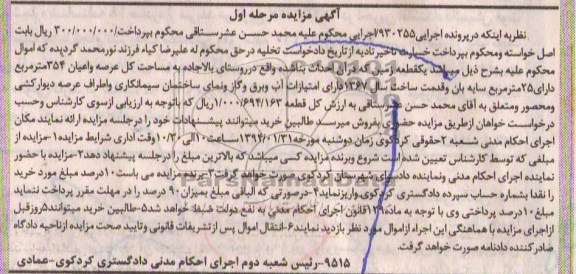 آگهی مزایده مرحله اول
نظربه اینکه درپرونده اجرایی۷۹۳۰۲۵۵اجرایی محکوم علیه محمد حسن عشرستاقی محکوم بپرداخت/۳۰۰/۰۰۰/۰۰۰ ریال بابت
اصل خواسته ومحکوم بپرداخت خسارت تاخیر تادیه ازتاریخ دادخواست تخلیه درحق محکوم له علیرضا کیاء فرزند نورمحمد گردیده که اموال
محکوم علیه بشرح ذیل میباشد یکقطعه زمین که درآن احداث بناشده واقع درروستای بالاجاده به مساحت کل عرصه واعیان ۳۵۴مترمربع
دارای۲۵مترمربع سایه بان وقدمت ساخت سال ۱۳۶۷دارای امتیازات آب وبرق وگاز ونمای ساختمان سیمانکاری واطراف عرصه دیوارکشی
ومحصور ومتعلق به آقای محمد حسن عشرستاقی به ارزش کل قطعه ۱/۰۰۰/۶۹۴/۱۶۳ریال که باتوجه به ارزیابی ازسوی کارشناس وحسب
درخواست خواهان ازطریق مزایده حضوری بفروش میرسد طالبین خرید میتوانند پیشنهادات خود را درجلسه مزایده ارائه نمایند مکان
اجرای احکام مدنی شعبه ۲حقوقی کردکوی زمان دوشنبه مورخه۱۳۹۴/۰۱/۳۱ساعت۱۰الی ۱۰/۳۰وقت اداری شرایط مزایده۱-مزایده از
مبلغی که توسط کارشناس تعیین شده است شروع وبرنده مزایده کسی میباشدکه بالاترین مبلغ را درجلسه پیشنهاد دهد۲-مزایده با حضور
نماینده اجرای احکام مدنی ونماینده دادسرای شهرستان کردکوی صورت خواهد گرفت۳-برنده مزایده می بایست۱۰درصد مبلغ مورد خرید
را نقدا بشماره حساب سپرده دادگستری کردکوی واریزنماید۴-درصورتی که الباقی مبلغ بمیزان۹۰ درصد را در مهلت مقرر پرداخت ننماید
مبلغ۱۰درصد پرداختی وی با توجه به ماده۱۲۹قانون اجرای احکام مدنی به نفع دولت ضبط خواهد شد۵-طالبین خرید میتوانند۵روزقبل
ازاجرای مزایده با هماهنگی این اجراء ازاموال مورد نظر بازدید نمایند۶-انتقال اموال پس از تشریفات قانونی وتایید صحت مزایده ازناحیه دادگاه
صادرکننده دادنامه صورت خواهد گرفت.
۹۵۱۵-رئیس شعبه دوم اجرای احکام مدنی دادگستری کردکوی-عمادی